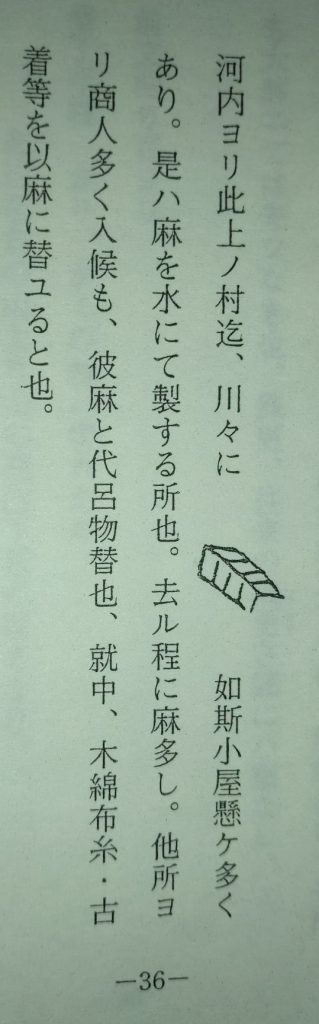 河内ヨリ此上ノ村迄、川々に　如斯小屋懸ケ多く
あり。是ハ麻を水にて製する所也。去ル程に麻多し。他所ヨ
リ商人多く入候も、彼麻と代呂物替也、就中、木綿布糸・古
着等を以麻に替ユると也。
—36—